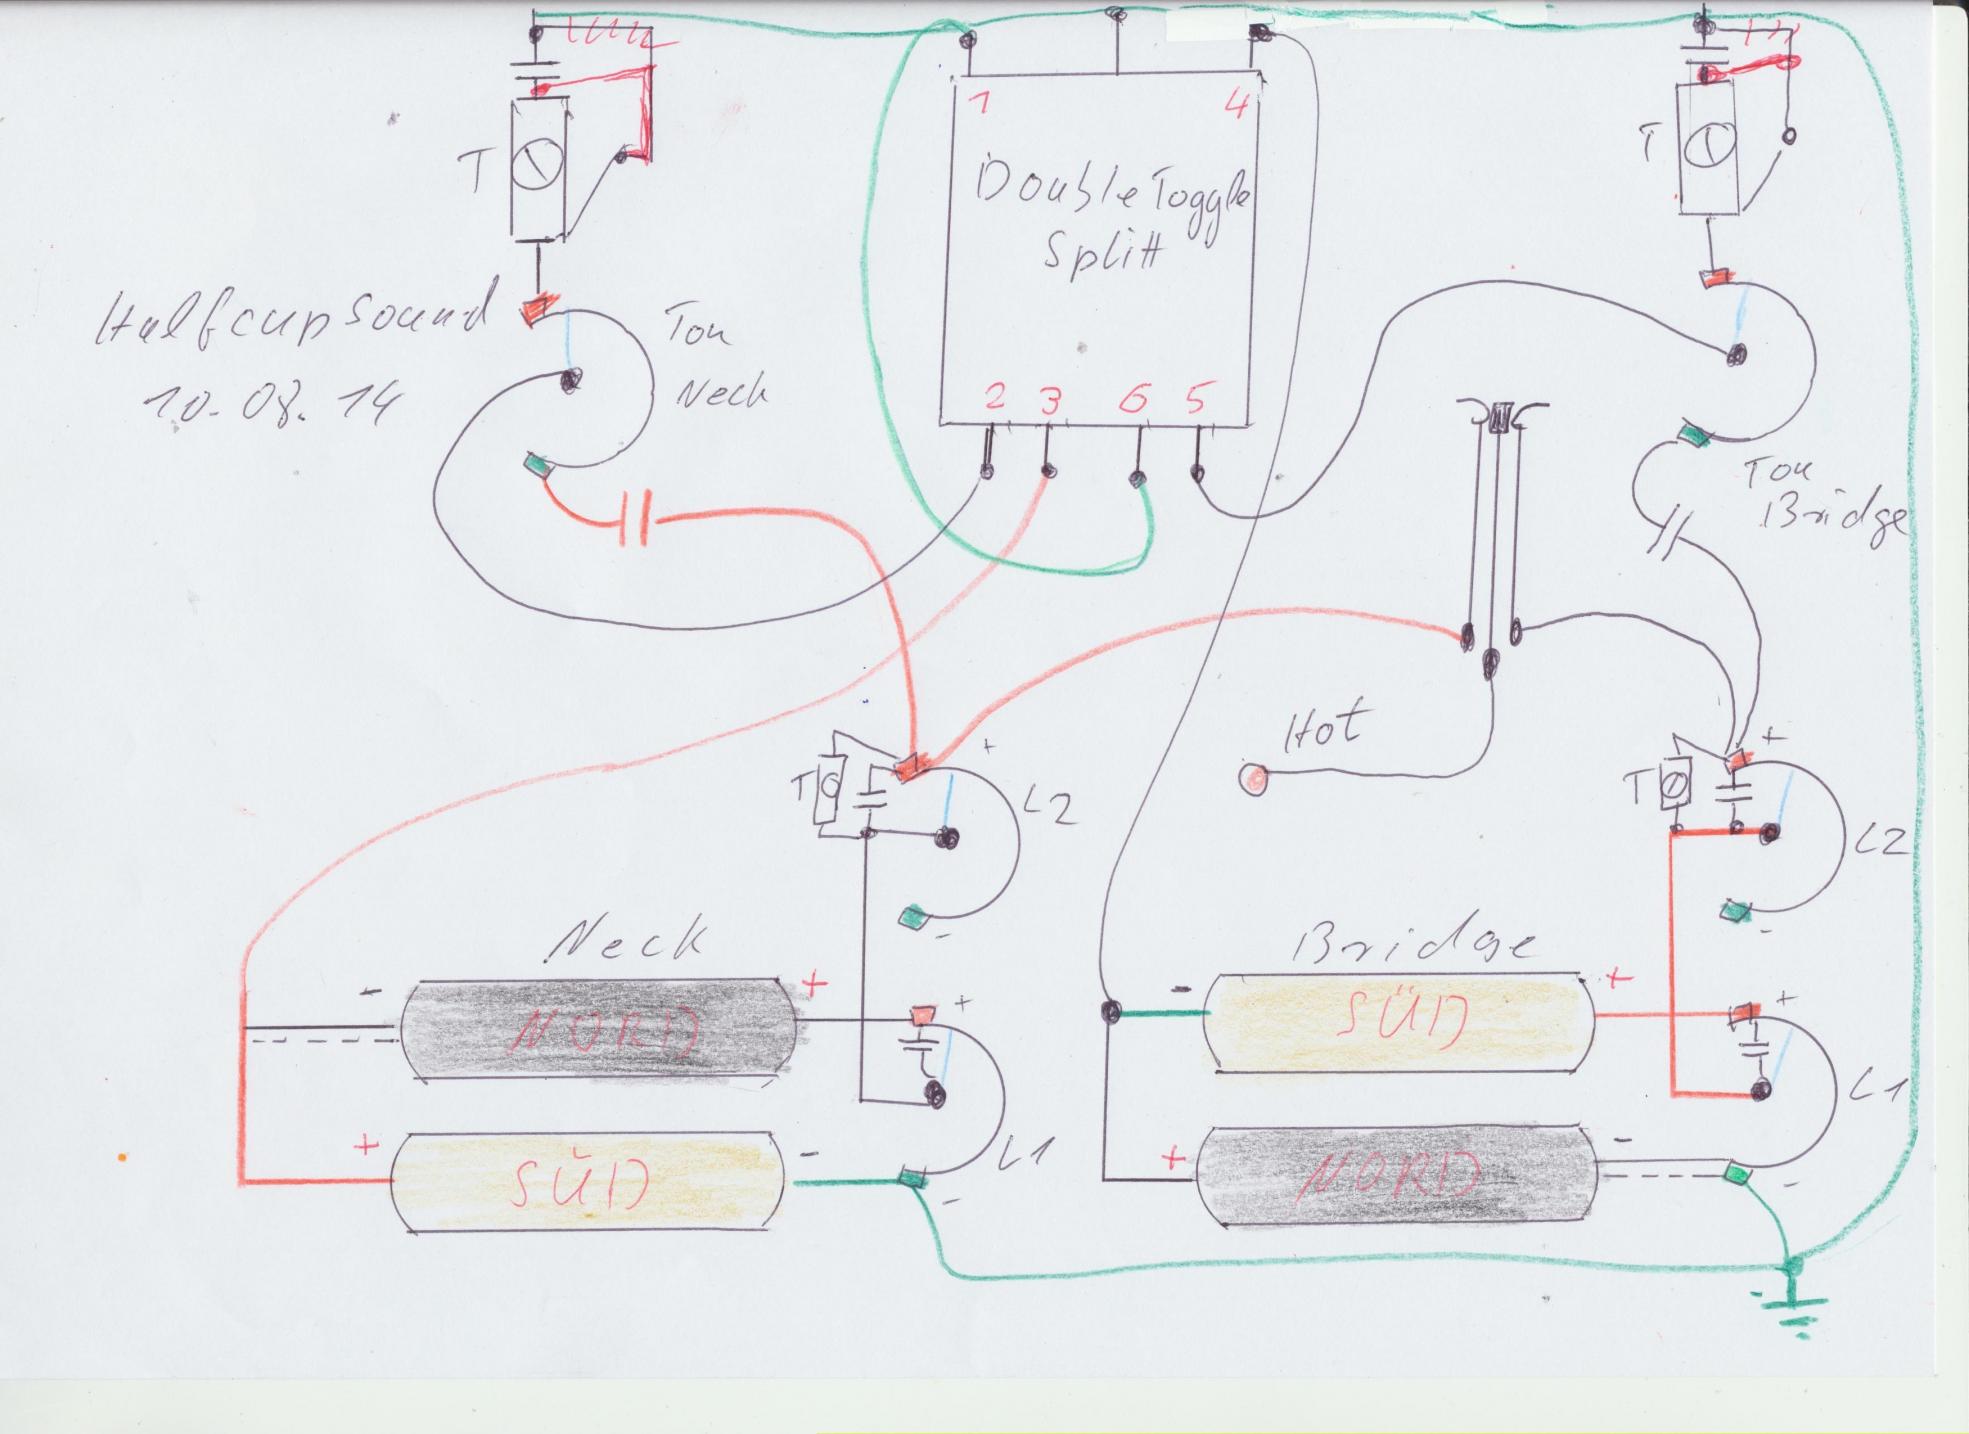 1
4
Double Toggle
Splitt
2 3 6 5
T
T
Halfcup Sound
10.08.14
Ton
Neck
Ton
Bridge
Hot
+
+
T
L2
T
L2
-
-
Neck
Bridge
-
+
+
-
+
+
NORD
SÜD
L1
L1
+
-
+
-
SÜD
NORD
-
-
-